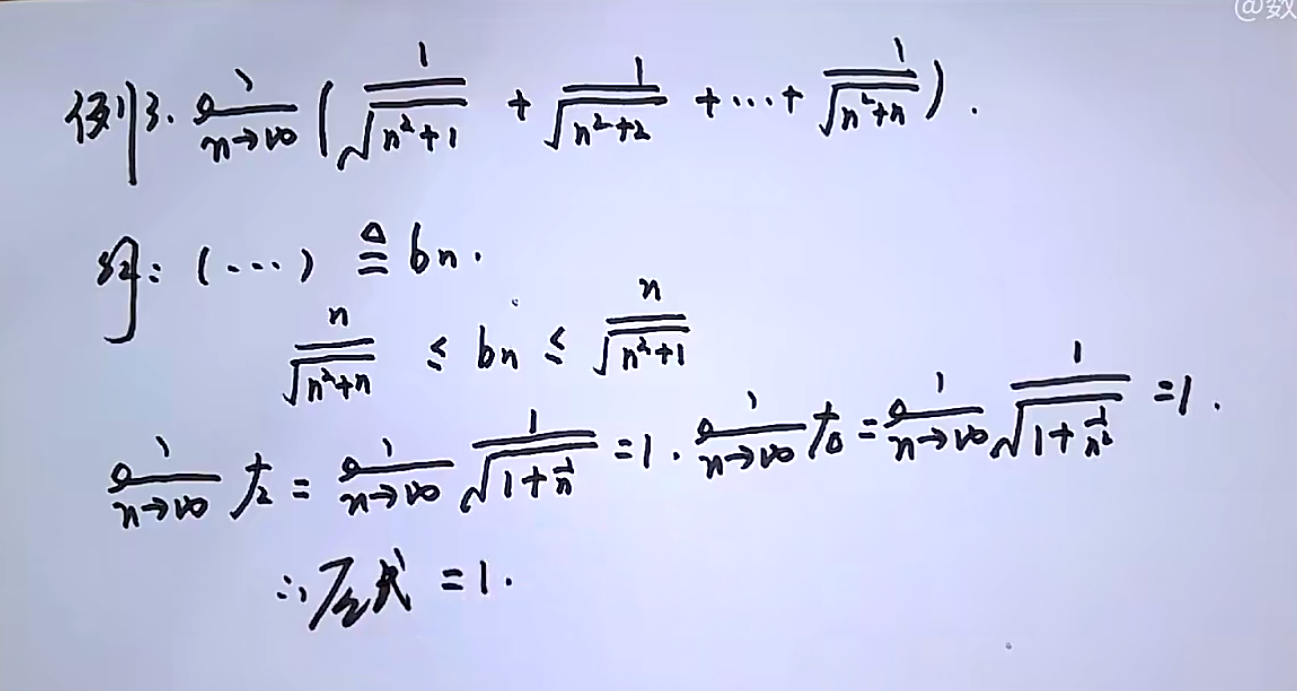 @数
例3. lim n→∞ ( 1/√(n²+1) + 1/√(n²+2) + ··· + 1/√(n²+n) ).
解: (···) ≜ bn.
n/√(n²+n) ≤ bn ≤ n/√(n²+1)
lim n→∞ 左 = lim n→∞ 1/√(1+1/n) = 1. lim n→∞ 右 = lim n→∞ 1/√(1+1/n²) = 1.
∴ 原式 = 1.